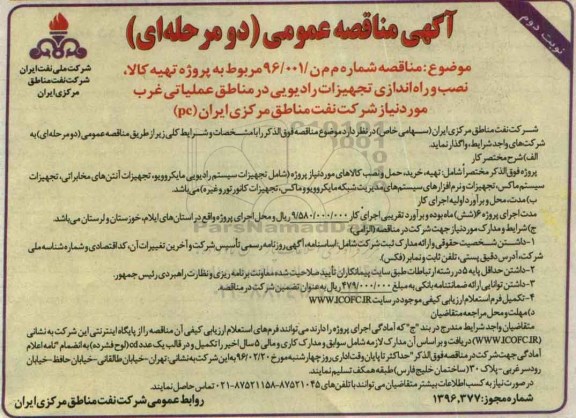 آگهی مناقصه عمومی (دو مرحله‌ای)
نوبت دوم
شرکت ملی نفت ایران
شرکت نفت مناطق
مرکزی ایران
موضوع: مناقصه شماره م م ن/۹۶/۰۰۱ مربوط به پروژه تهیه کالا،
نصب و راه اندازی تجهیزات رادیویی در مناطق عملیاتی غرب
مورد نیاز شرکت نفت مناطق مرکزی ایران (pc)
شرکت نفت مناطق مرکزی ایران (سهامی خاص) در نظر دارد موضوع مناقصه فوق الذکر را با مشخصات و شرایط کلی زیر از طریق مناقصه عمومی (دو مرحله‌ای) به
شرکت‌های واجد شرایط، واگذار نماید.
الف) شرح مختصر کار
پروژه فوق الذکر مختصراً شامل: تهیه، خرید، حمل و نصب کالاهای مورد نیاز پروژه (شامل تجهیزات سیستم رادیویی مایکروویو، تجهیزات آنتن‌های مخابراتی، تجهیزات
سیستم ماکس، تجهیزات و نرم افزارهای سیستم‌های مدیریت شبکه مایکروویو و ماکس، تجهیزات کانورتور و غیره) می‌باشد.
ب) مدت، محل و برآورد اولیه اجرای کار
مدت اجرای پروژه ۶ (شش) ماه بوده و برآورد تقریبی اجرای کار ۹/۵۸۰/۰۰۰/۰۰۰ ریال و محل اجرای پروژه واقع در استان‌های ایلام، خوزستان و لرستان می‌باشد.
ج) شرایط و مدارک مورد نیاز جهت شرکت در مناقصه (الزامی)
۱- داشتن شخصیت حقوقی و ارائه مدارک ثبت شرکت شامل: اساسنامه، آگهی روزنامه رسمی تأسیس شرکت و آخرین تغییرات آن، کد اقتصادی و شماره شناسه ملی
شرکت، آدرس دقیق پستی، تلفن ثابت و نمابر (فکس).
۲- داشتن حداقل پایه ۵ در رشته ارتباطات طبق سایت پیمانکاران تأیید صلاحیت شده معاونت برنامه ریزی و نظارت راهبردی رئیس جمهور.
۳- داشتن توانایی ارائه ضمانتنامه بانکی به مبلغ ۴۷۹/۰۰۰/۰۰۰ ریال به عنوان تضمین شرکت در مناقصه.
۴- تکمیل فرم استعلام ارزیابی کیفی موجود در سایت WWW.ICOFC.IR
د) مهلت و محل مراجعه متقاضیان
متقاضیان واجد شرایط مندرج در بند "ج" که آمادگی اجرای پروژه را دارند می‌توانند فرم‌های استعلام ارزیابی کیفی آن مناقصه را از پایگاه اینترنتی این شرکت به نشانی
(WWW.ICOFC.IR) دریافت و بر اساس آن مدارک لازمه شامل سوابق و مدارک کاری و مالی ۵ سال اخیر را تکمیل و در قالب یک عدد cd (لوح فشرده) به انضمام "نامه اعلام
آمادگی جهت شرکت در مناقصه فوق الذکر" حداکثر تا پایان وقت اداری روز چهارشنبه مورخ ۹۶/۰۲/۲۰ به این شرکت به نشانی: تهران- خیابان طالقانی- خیابان حافظ- خیابان
رودسر غربی- پلاک ۳۰ (ساختمان خلیج فارس) طبقه همکف تسلیم نمایند.
در صورت نیاز به کسب اطلاعات بیشتر متقاضیان می‌توانند با تلفن‌های ۸۷۵۲۱۰۴۵-۸۷۵۲۱۱۵۸-۰۲۱ تماس حاصل نمایند.
شماره مجوز: ۱۳۹۶.۳۷۷
روابط عمومی شرکت نفت مناطق مرکزی ایران